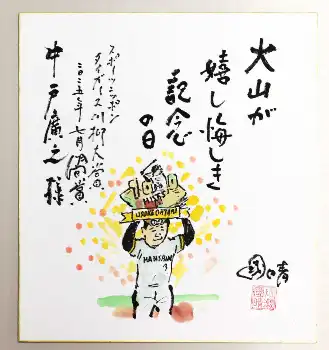 大山が
嬉し悔しき
記念
の日
スポーツニッポン
タイガース川柳大賞
二〇二五年七月間賞
中戸廣之様
1000
HITS
HANSHIN
3